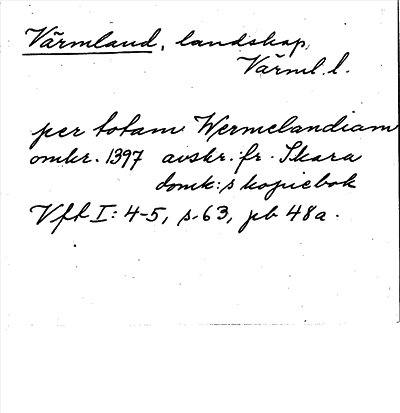 Värmland, landskap,
Värml. l.
per totam Wermelandiam
omkr. 1397 avskr. fr. Skara
domk:s kopiebok
Vfl I: 4-5, s. 63, pb 48a.